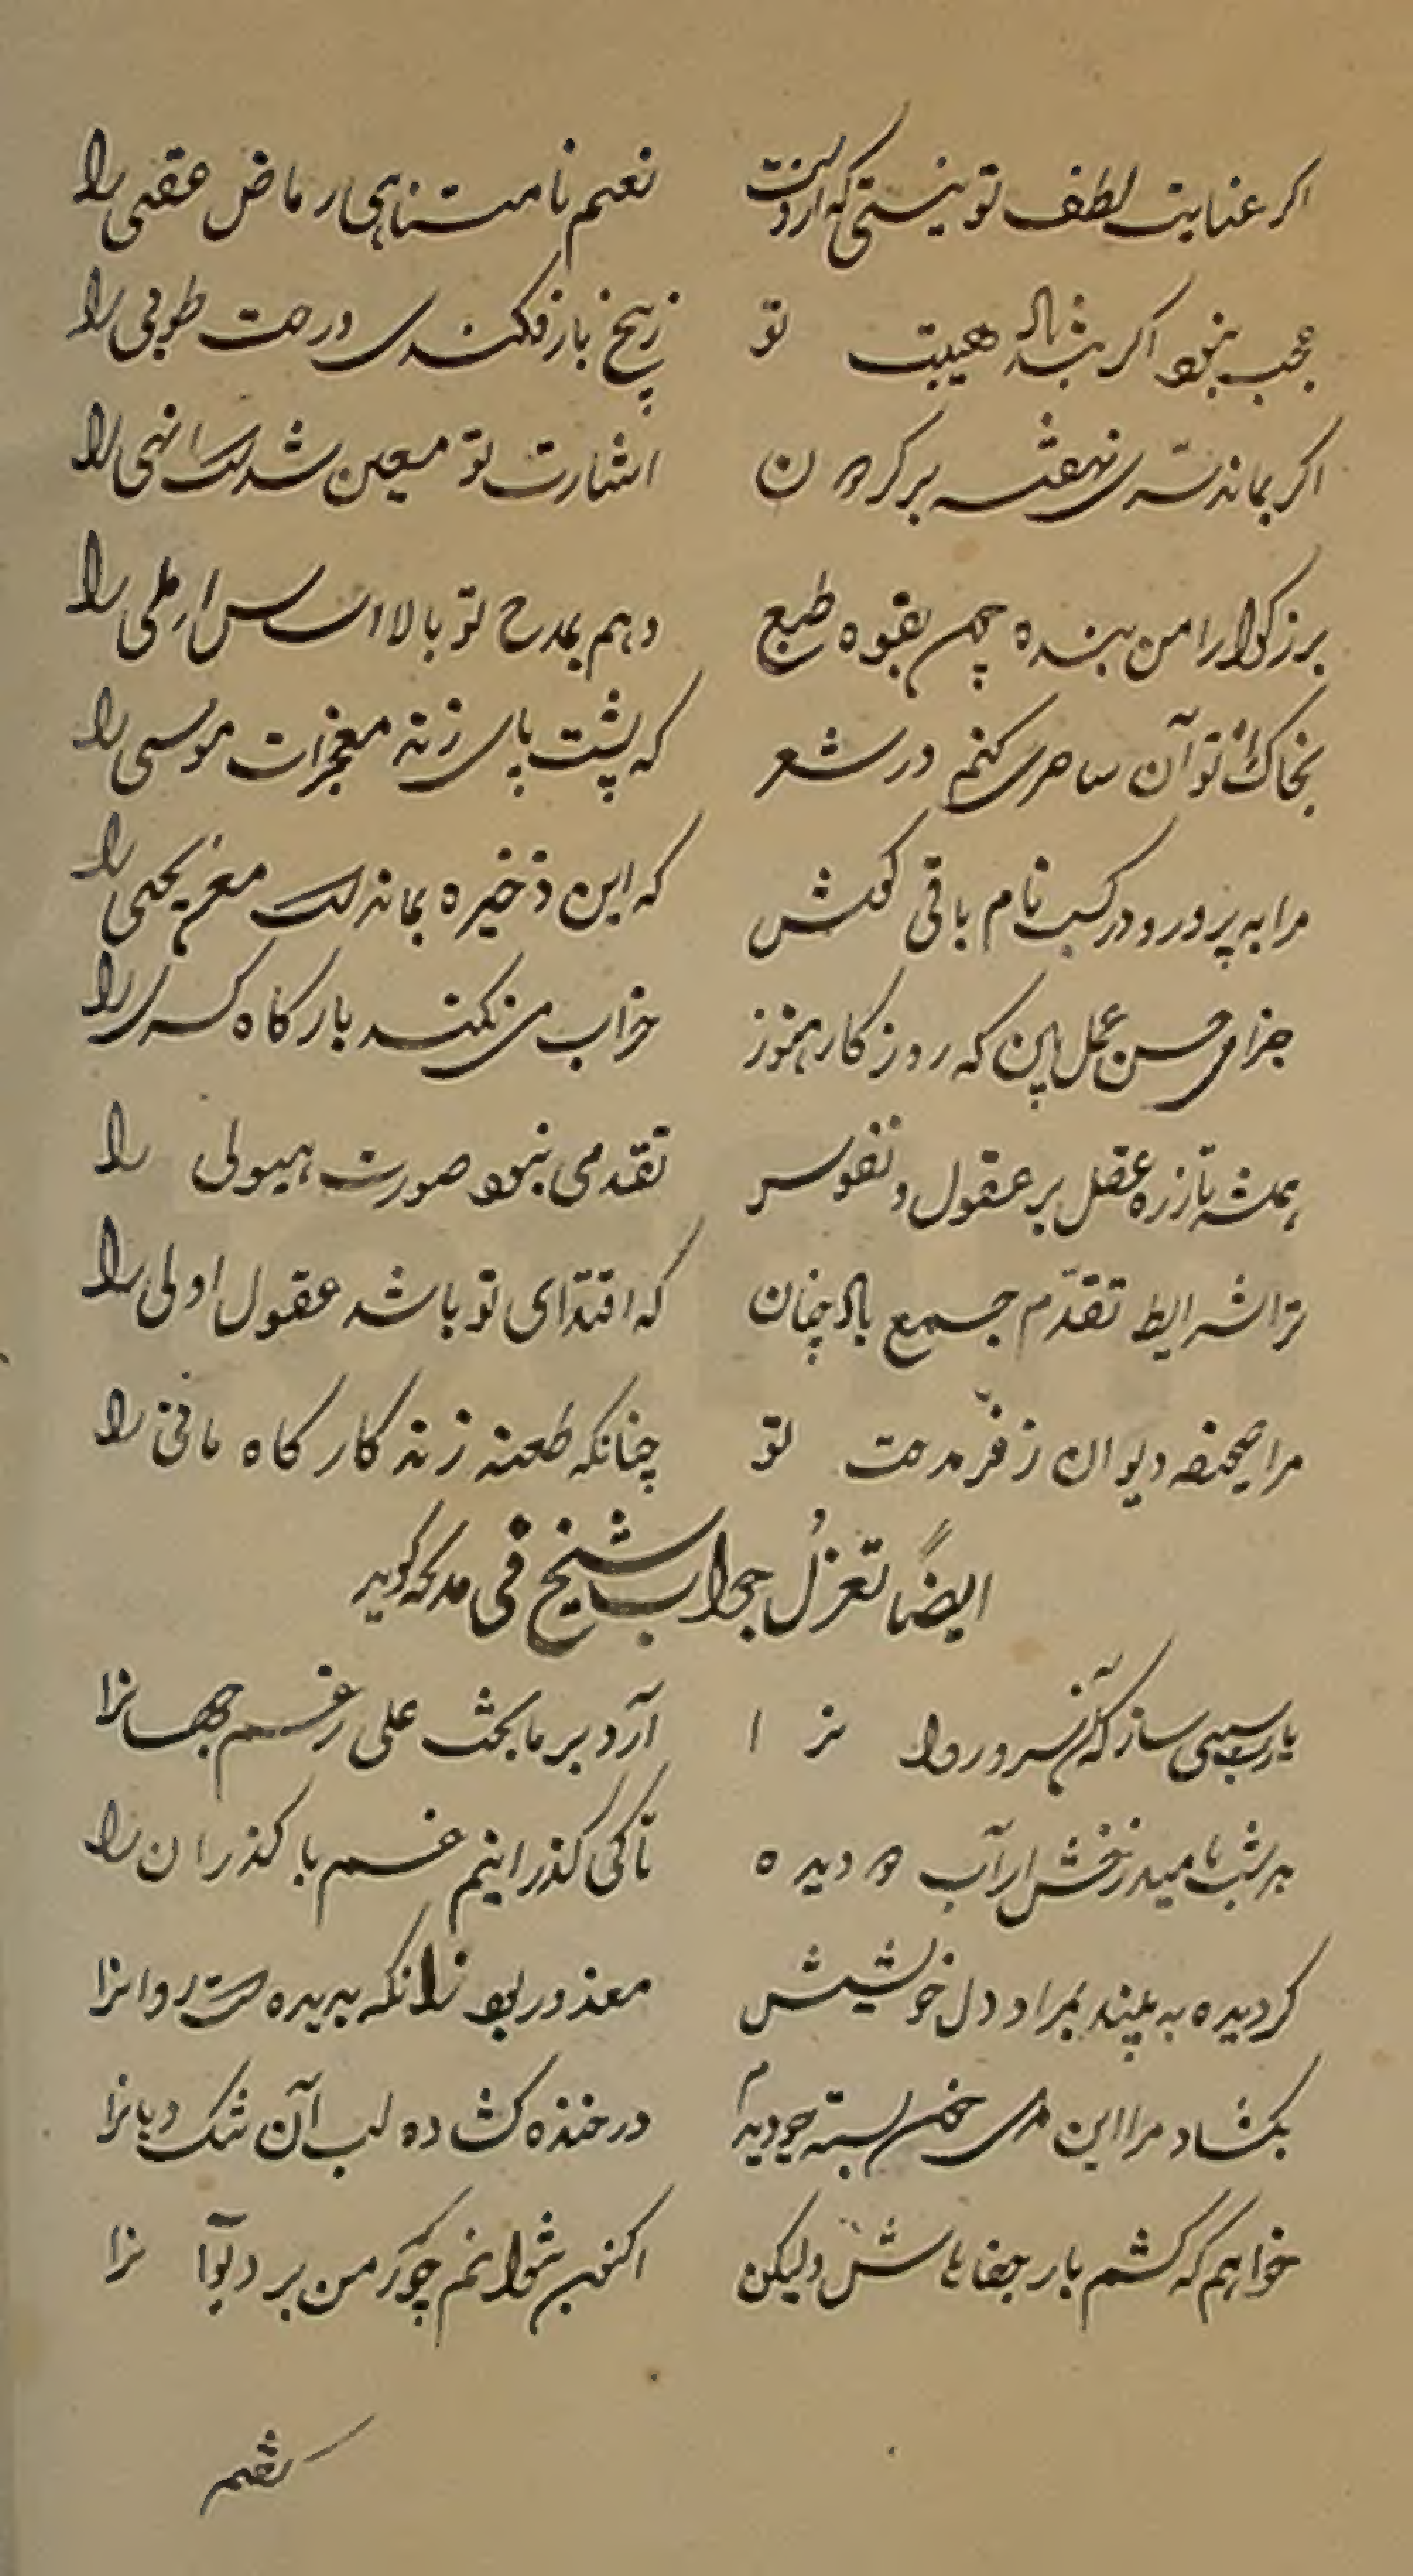 اگر عنایت لطف تو نیستی که نعیم نامتناهی ریاض عقبی را
عجب نبود اگر هیبت تو ز بیخ باز فکندی درخت طوبی را
اگر بماند سری نهفته بر گردون اشارت تو معین شدست انهی را
بزرگوارا من بنده چون بقوه طبع دهم بمدح تو بالا اساس املی را
بخاک تو آن ساحری کنم در شعر که پشت پای زند معجزات موسی را
مرا به پرور و در کسب نام باقی کوش که این ذخیره بماندست معن یحیی را
جزای حسن عمل بین که روزگار هنوز خراب می نکند بارگاه کسری را
همیشه تا ز ره عقل بر عقول و نفوس تقدمی نبود صورت هیولی را
ترا شرایط تقدّم جمع باد چنان که اقتدای تو باشد عقول اولی را
مرا صحیفه دیوان ز فرّ مدحت تو چنانکه طعنه زند کارگاه مانی را
ایضاً تغزلُ جواب شیخ فی مدیحه گوید
یارب سببی ساز که آن سرو روانرا آرد بر ما بخت علی رغم جهانرا
هر شب بامید رخش از آب دو دیده تا کی گذرانیم غم با گذران را
گر دیده به بیند بمراد دل خویشش معذور بود زانکه بدیده ست روانرا
بگشاد مرا این سخن بسته چو دیدم در خنده گشاده لب آن تنگ دهانرا
خواهم که کشم بار جفاهاش ولیکن اکنون نتوانم چو ز من برد توانرا
گفتم